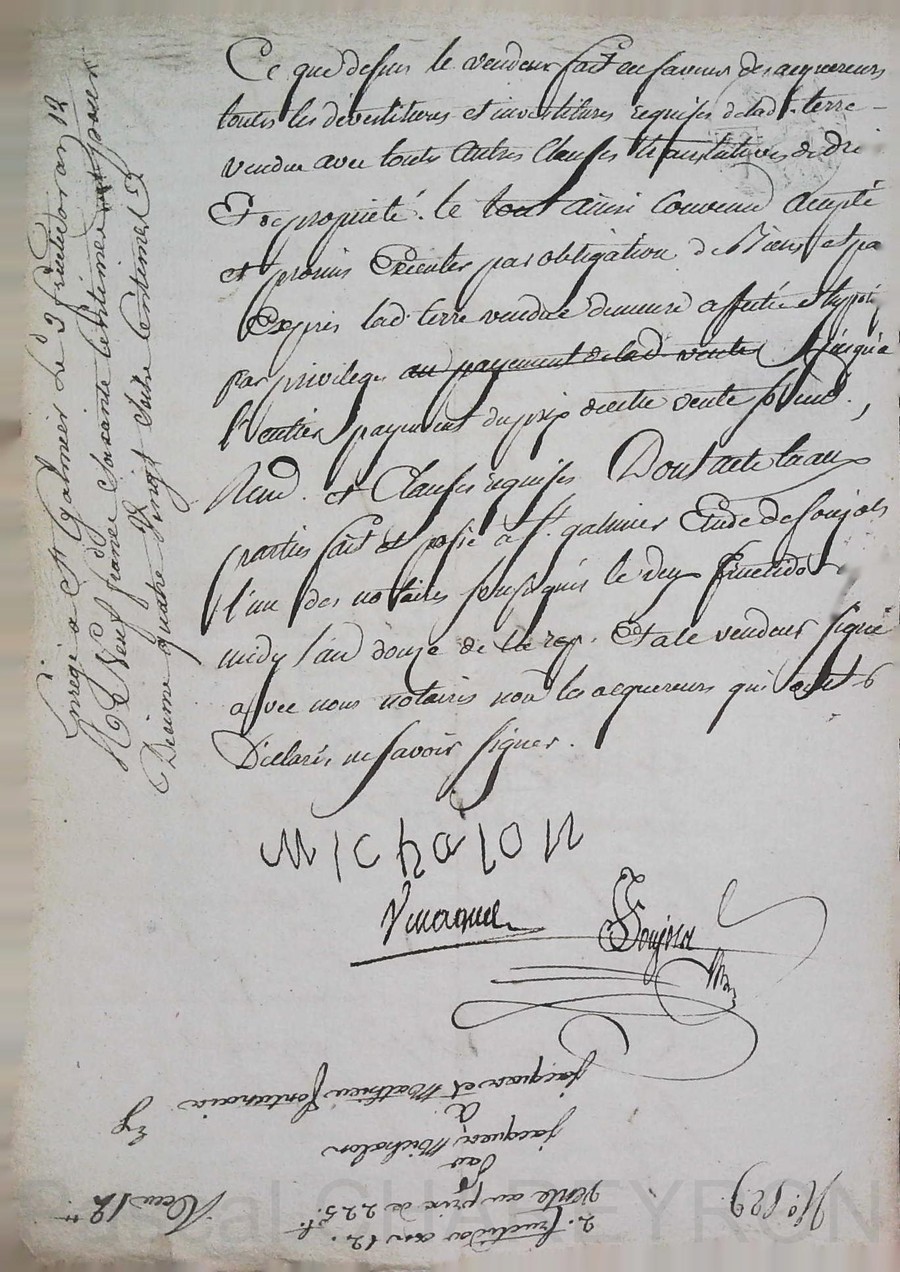 Ce que dessus le vendeur fait en faveur des acquereurs
toutes les dévestitures et investitures requises de lad. terre
vendue avec toutes autres Clauses translatives de
Et de propriété. le tout ainsi convenu accepté
et promis Executer par obligation de Biens et
Exprès lad. terre vendue demeure affectée et
par privilege au payement de lad. vente jusqu'a
l'entier payement du prix vente
Rend. et Clauses requises Dont acte
parties fait et passé à St. galmier Etude de Soujols
l'un des notaires soussignés le deux fructidor
midy l'an douze de la rep. Et a le vendeur signé
avec nous notaires non les acquereurs qui ont
Déclarés ne savoir signer.
Michalon
Enregé a St Galmier Le 3 fructidor an 12
Neuf francs soixante centimes pour
Décime quatre vingt seize centimes
No. 829
2. fructidor an 12.
vente au prix de 225.
Par
jacques Michalon
A
jacques et Mathieu fontanais
Pascal CHABEYRON